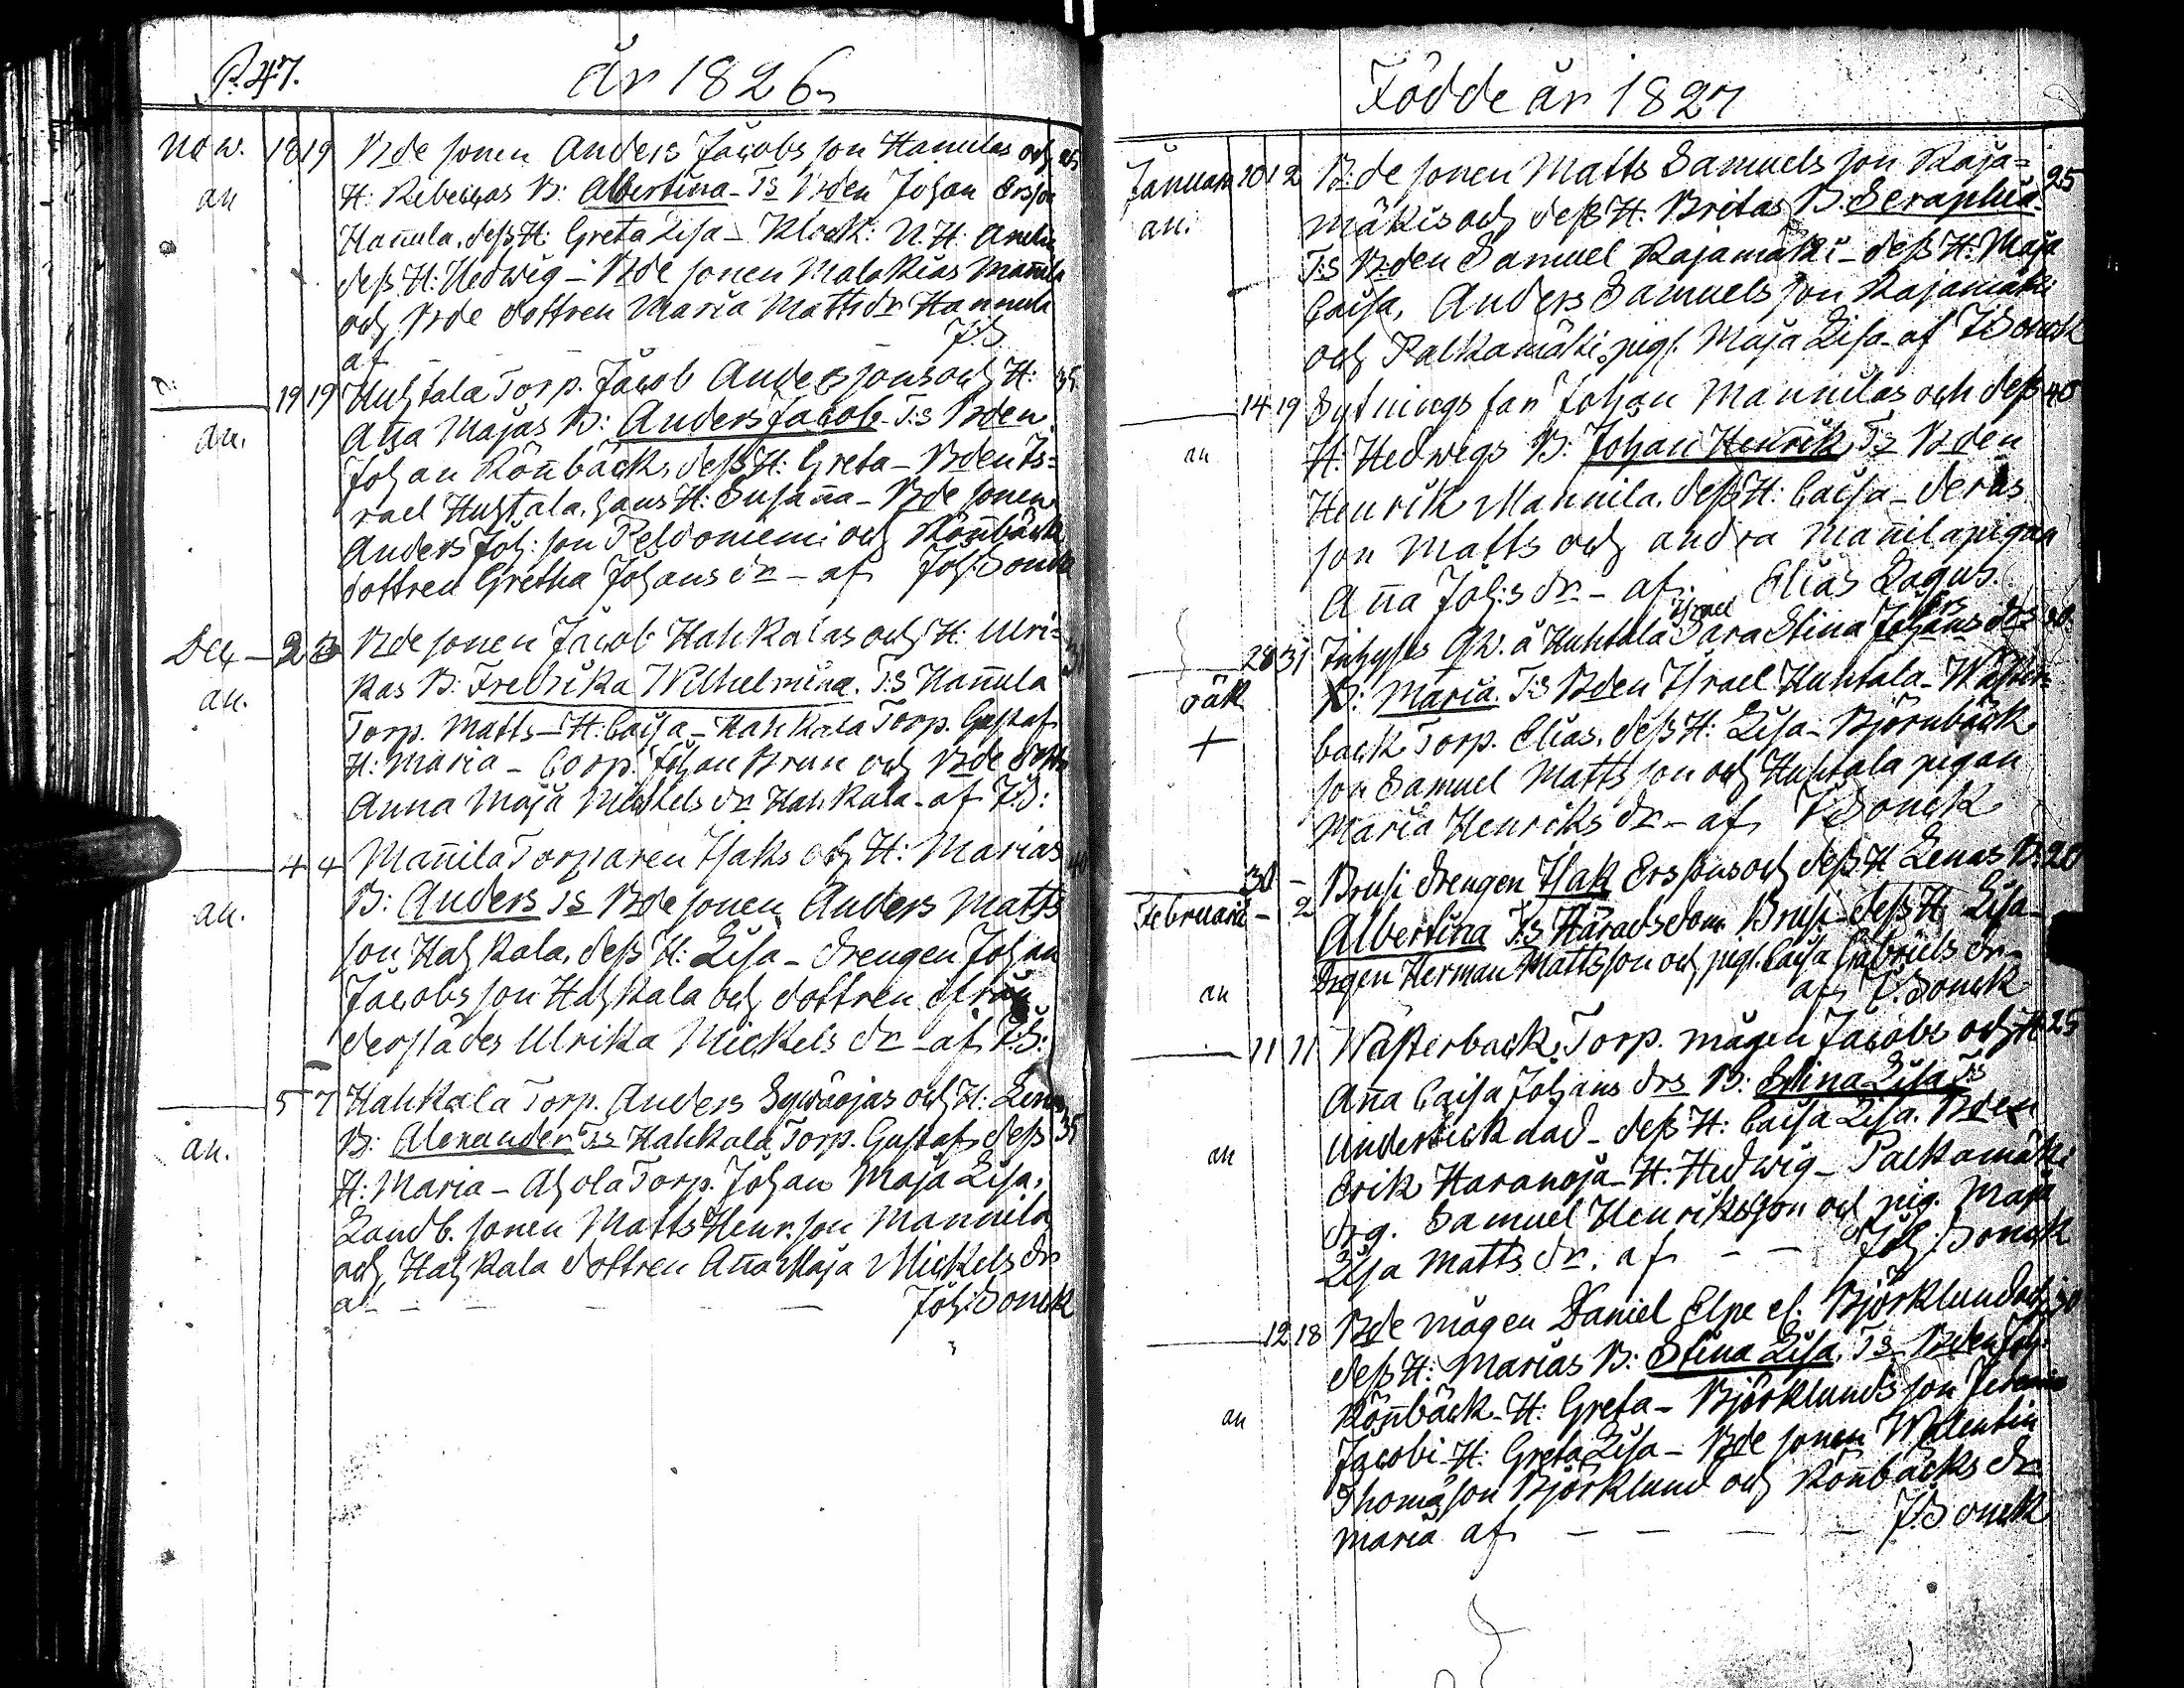 P. 47.
år 1826
Now. 18 19 Bde sonen Anders Jacobs son Hanulas och 25
an H: Rebeckas B: Albertina - Ts Bden Johan Ersson
Hañula, dess H: Greta Lisa - Klock: N. H.
dess H: Hedwig - Bde sonen Malakias Mañila
och Bde dottren Maria Matts dr Hannula
af J.S.
19 19 Huhtala Torp. Jacob Andersons och H: 35
an. Aña Majas B: Anders Jacob - T:s Bden
Johan Röñbäck, dess H: Greta - Bden Is=
rael Huhtala, hans H: Susaña - Bde sonen
Anders Joh: son Peldoniemi och Röñbäck
dottren Gretha Johans dr - af Joh: Sonck
Dec - 2 Bde sonen Jacob Hahkalas och H: Ulri=
an. kas B: Fredrika Wilhelmina. T:s Hañula
Torp. Matts - H. Caisa - Hahkala Torp. Gustaf
H: Maria - Corp. Johan Brun och Bde dottr
Anna Maja Mickels dr Hahkala - af J.S:
4 4 Mañila Torparen Isaks och H: Marias 40
an. B: Anders Ts Bde sonen Anders Matts
son Hahkala, dess H: Lisa - drengen Johan
Jacobs son Hahkala och dottren ifrån
derstädes Ulrika Mickels dr - af J.S:
5 7 Hahkala Torp. Anders Sywäojas och H: Lenas
an. B: Alexander Ts Hahkala Torp. Gustaf, dess 35
H: Maria - Ahola Torp. Johan Maja Lisa,
Landb. sonen Matts Henr. son Mannila
och Hahkala dottren Aña Maja Mickels dr
af Joh: Sonck
Födde år 1827
Januari 10 12 B:de sonen Matts Samuels son Raja= 25
an. mäkis och dess H: Britas B. Seraphia.
T:s B:den Samuel Rajamäki - dess H: Maja
Caisa, Anders Samuels son Rajamäki
och Palkamäki pigl. Maja Lisa - af J Sonck
14 19 Sytnings far Johan Mannilas och dess 40
an H: Hedwigs B: Johan Henrik, Ts Bden
Henrik Mannila, dess H: Caisa - deras
son Matts och andra Mañilapigan
Aña Joh:s dr - af. Elias Lagus.
28 31 Inhyses Qv. å Huhtala Israel Sara Stina Johans drs 30.
oäk B: Maria. T:s Bden Israel Huhtala - Wäster=
+ back Torp. Elias, dess H: Lisa - Björnbäck
son Samuel Matts son och Huhtala pigan
Maria Henriks dr - af J Sonck
30 - Brusi drengen Isak Erssons och dess H Lenas B: 20
Februarii - 2 Albertina T:s Häradsdom. Brusi - dess H: Lisa -
an drgen Herman Matts son och pigl. Caisa Gabriels dr -
af J. Sonck
11 11 Wästerback Torp. mågen Jacobs och H: 25
an Aña Caisa Johans drs B: Stina Lisa T:s
dess H: Caisa Lisa. Bden
Erik Haranoja - H: Hedwig - Palkamäki
drg. Samuel Henriks son och pig. Maja
Lisa Matts dr. af - - Joh: Sonck
12 18 Bde mågen Daniel Elpe el. Björklund och 30
an dess H: Marias B: Stina Lisa, Ts Bden Joh:
Röñbäck - H: Greta - Björklunds son
Jacobi - H: Greta Lisa - Bde sonen Walentin
Thomas son Björklund och Röñbäcks dr
Maria af - - - - J. Sonck